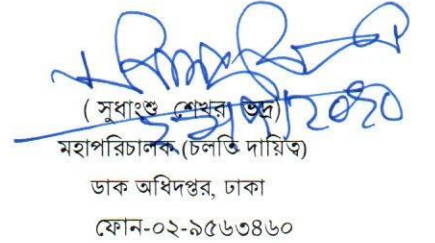 ( সুধাংশু শেখর ভদ্র)
মহাপরিচালক (চলতি দায়িত্ব)
ডাক অধিদপ্তর, ঢাকা
ফোন-০২-৯৫৬৩৪৬০